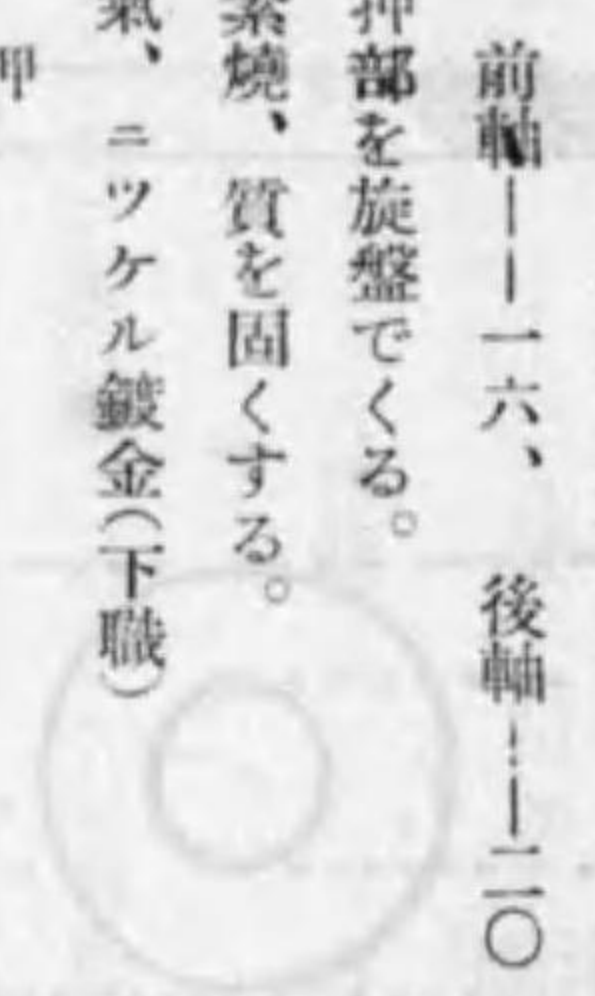 前軸――一六、　後軸――二〇
押部を旋盤でくる。
素燒、質を固くする。
氣、ニツケル鍍金(下職)
甲